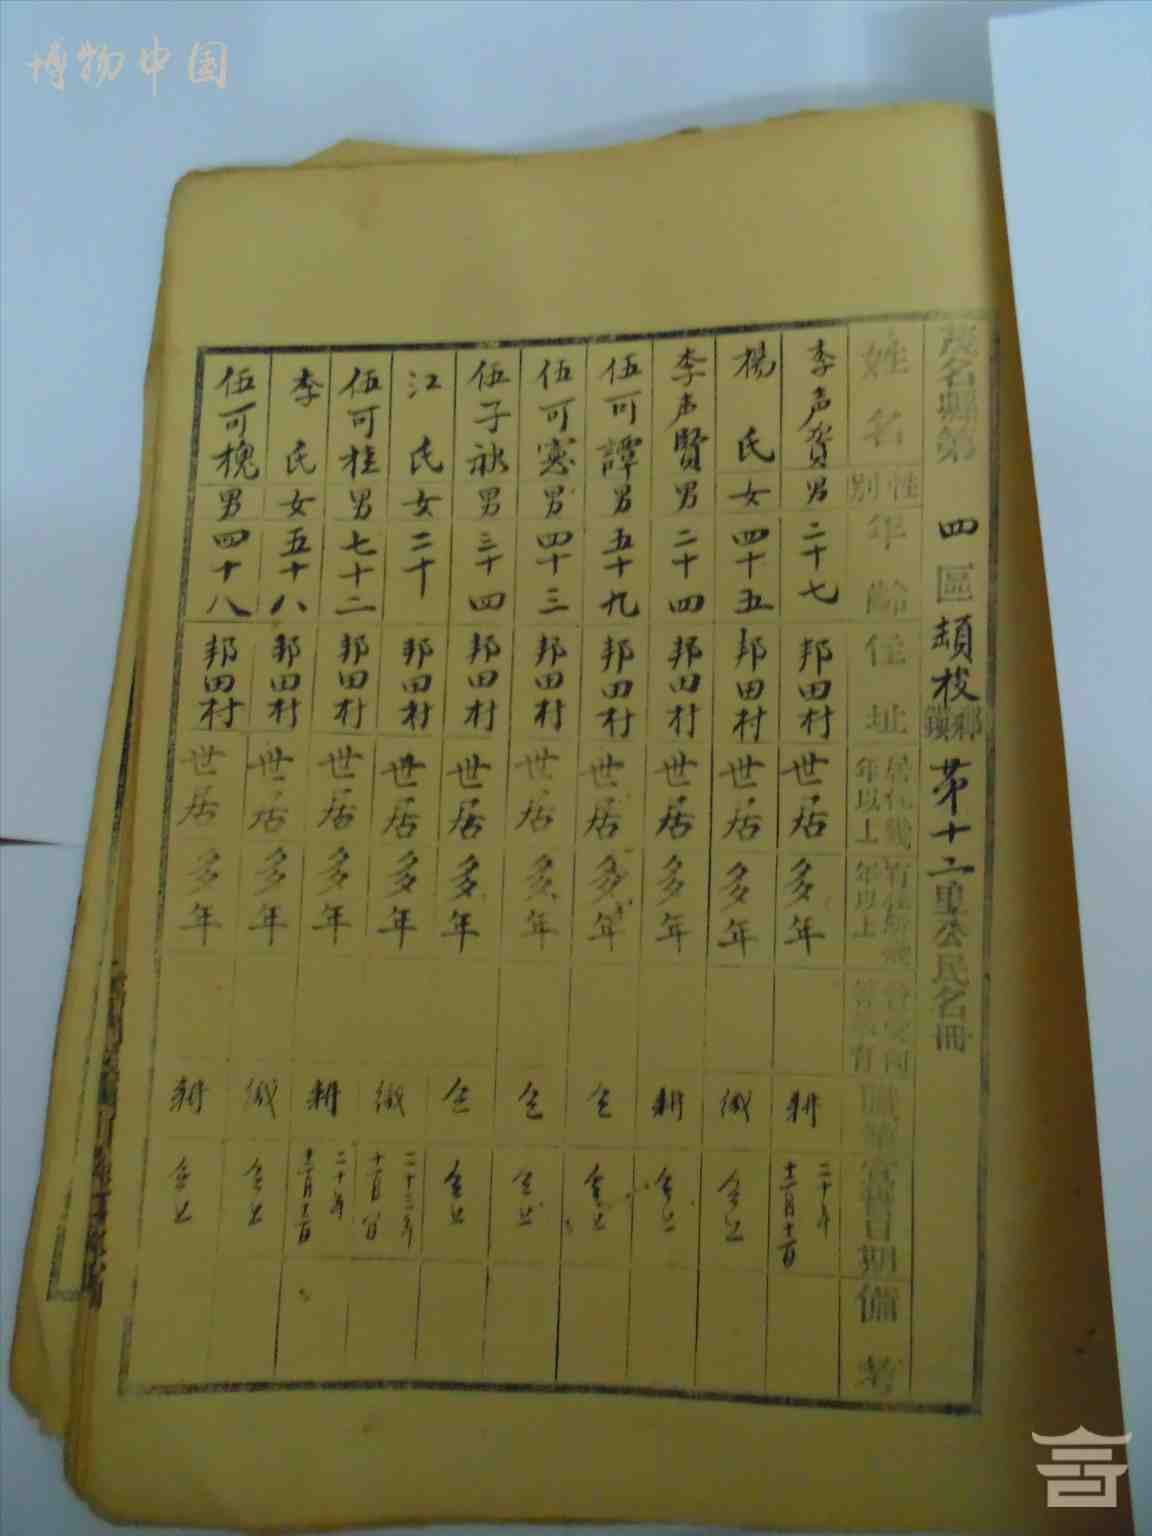 博物中国
茂名縣第四區頡梭鄉鎮第十二里公民名冊
姓名 性別 年齡 住址 居住幾年以上 有住所幾年以上 職業 宣誓日期 備考
李声賢 男 二十七 邦田村 世居 多年 耕 二十年十二月十二日
楊氏 女 四十五 邦田村 世居 多年 織 仝上
李声賢 男 二十四 邦田村 世居 多年 耕 仝上
伍可譚 男 五十九 邦田村 世居 多年 仝 仝上
伍可 男 四十三 邦田村 世居 多年 仝 仝上
伍子 男 三十四 邦田村 世居 多年 仝 仝上
江氏 女 二十 邦田村 世居 多年 織 二十三年十一月 日
伍可桂 男 七十二 邦田村 世居 多年 耕 二十年十二月十二日
李氏 女 五十八 邦田村 世居 多年 織 仝上
伍可槐 男 四十八 邦田村 世居 多年 耕 仝上